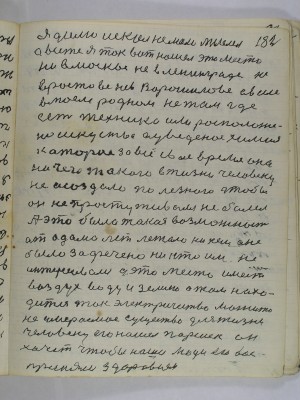 182
Я долго искал немало мыслил
а вить я ток вот нашел это место
ни в москве не в ленинграде не
в ростове не в Ворошилове а в селе
в моем родном не там где
есть техника или расположе-
но искуства а уведеное химия
каторое за всё свое время она
ничего такого в жизни человеку
не создало полезного чтобы
он не простуживался не болел
А это было такая возможност
от адама лет лежало никем оно
было замечено никто им не
интересовался а это место имеет
воздух воду и землю а там нахо-
дится ток электричество магнито
не умераемое существо для жизни
человеку его нашел паршек он
хочет чтобы наши люди его вос
приняли здоровия